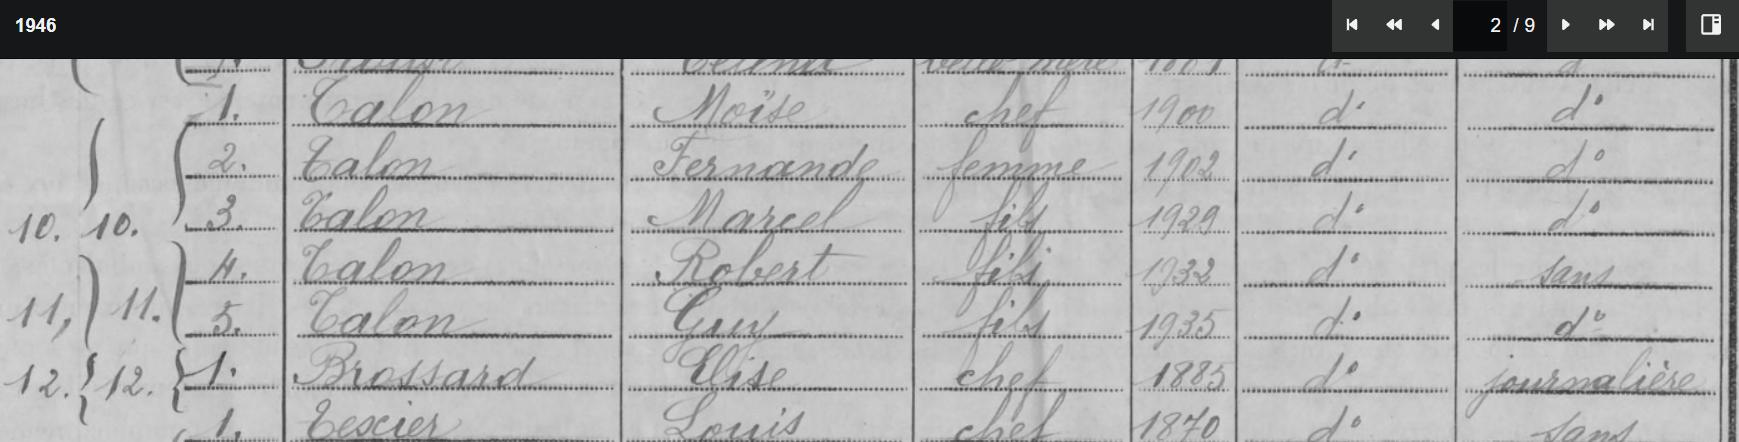 1946 2 / 9
1. Talon Moïse chef 1900 d° d°
2. Talon Fernande femme 1902 d° d°
10. 10. 3. Talon Marcel fils 1929 d° d°
4. Talon Robert fils 1932 d° sans
11, 11. 5. Talon Guy fils 1935 d° d°
12. 12. 1. Brossard Elise chef 1885 d° journalière
1. Texier Louis chef 1870 d° sans